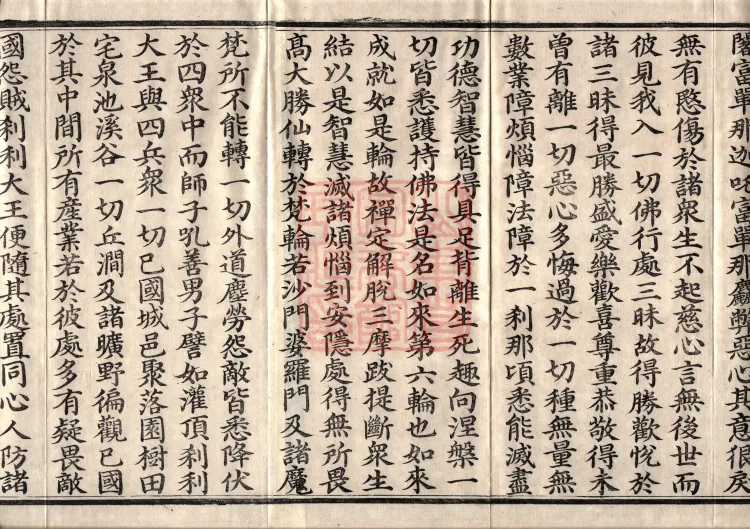 闍富單那迦吒富單那麤弊惡心其意很戾
無有慜傷於諸衆生不起慈心言無後世而
彼見我入一切佛行處三昧故得勝歡悅於
諸三昧得最勝盛愛樂歡喜尊重恭敬得未
曾有離一切惡心多悔過於一切種無量無
數業障煩惱障法障於一刹那頃悉能滅盡
功德智慧皆得具足背離生死趣向涅槃一
切皆悉護持佛法是名如來第六輪也如來
成就如是輪故禪定解脫三摩跋提斷衆生
結以是智慧滅諸煩惱到安隱處得無所畏
高大勝仙轉於梵輪若沙門婆羅門及諸魔
梵所不能轉一切外道塵勞怨敵皆悉降伏
於四衆中而師子吼善男子譬如灌頂刹利
大王與四兵衆一切已國城邑聚落園樹田
宅泉池溪谷一切丘澗及諸曠野徧觀已國
於其中間所有産業若於彼處多有疑畏敵
國怨賊刹利大王便隨其處置同心人防諸